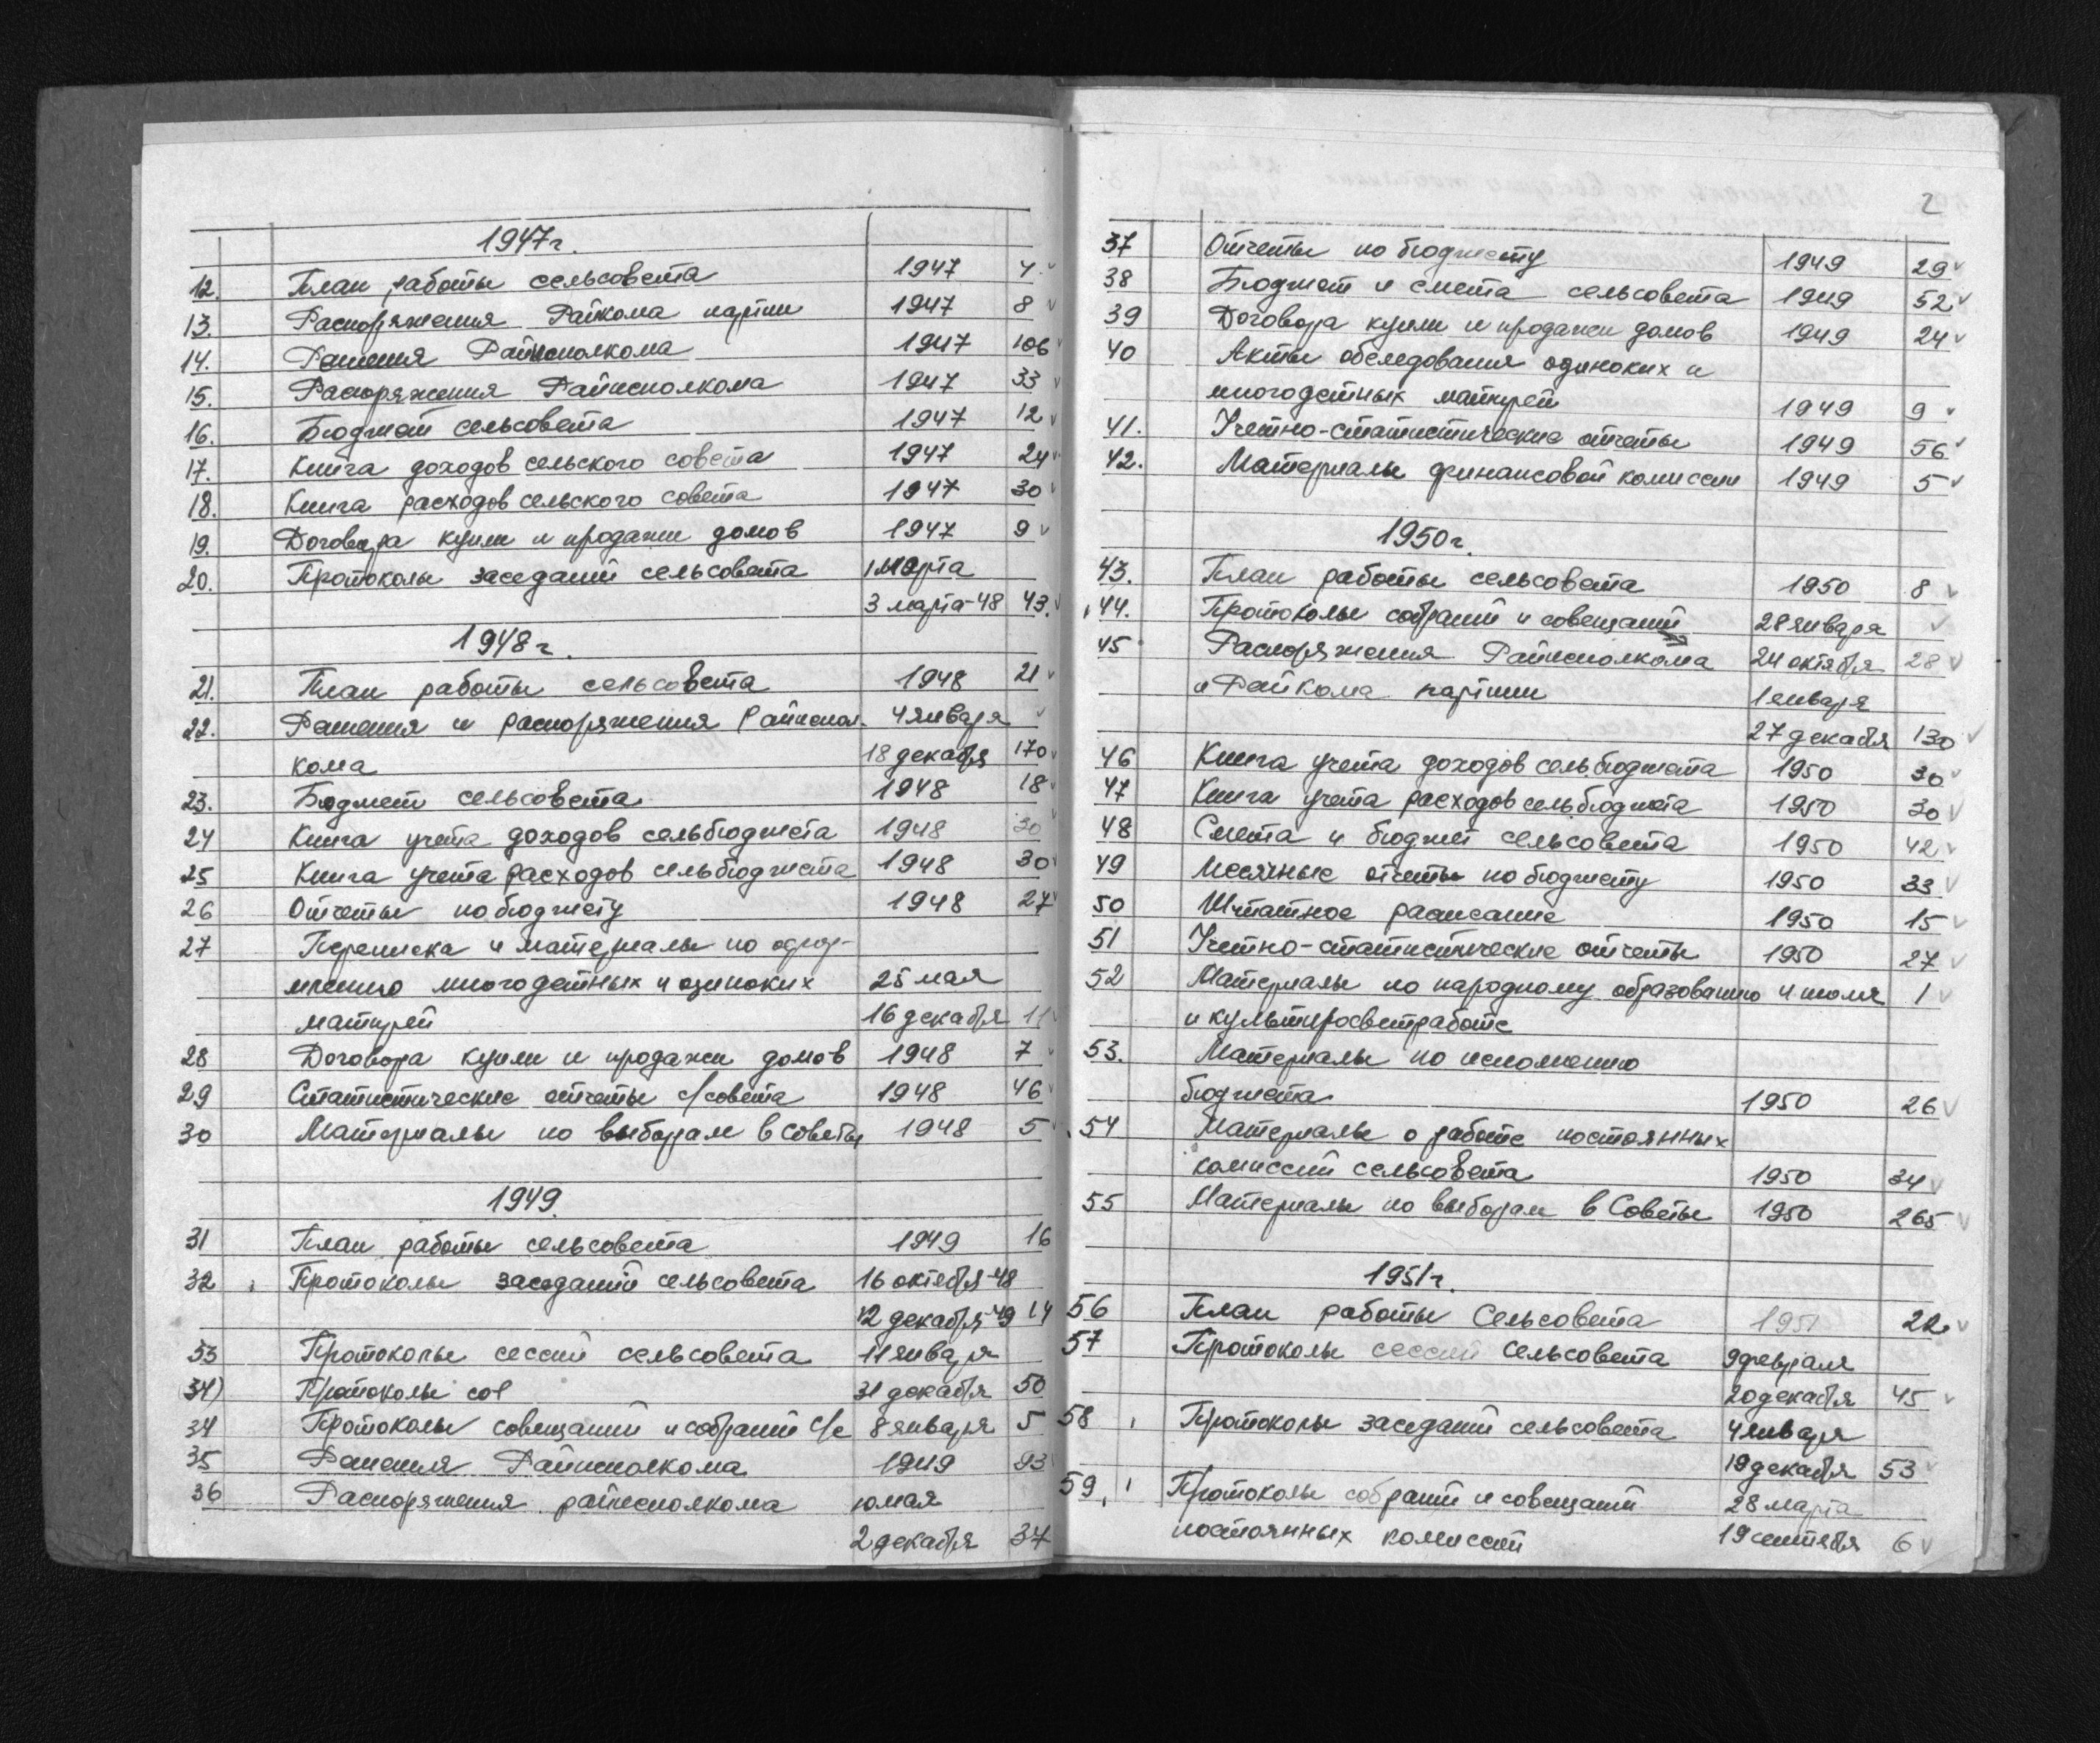 1947г.
12. План работы сельсовета 1947 4
13. Распоряжения Райкома партии 1947 8
14. Решения Райисполкома 1947 106
15. Распоряжения Райисполкома 1947 33
16. Бюджет сельсовета 1947 12
17. Книга доходов сельского совета 1947 24
18. Книга расходов сельского совета 1947 30
19. Договора купли и продажи домов 1947 9
20. Протоколы заседаний сельсовета 1 марта
3 марта-48 43.
1948г.
21. План работы сельсовета 1948 21
22. Решения и распоряжения Райиспол- 4 января
кома 18 декабря 170
23. Бюджет сельсовета 1948 18
24 Книга учета доходов сельбюджета 1948 30
25 Книга учета расходов сельбюджета 1948 30
26 Отчеты по бюджету 1948 27
27 Переписка и материалы по
многодетных и одиноких 25 мая
матерей 16 декабря 11
28 Договора купли и продажи домов 1948 7
29 Статистические отчеты с/совета 1948 46
30 Материалы по выборам в Советы 1948 5
1949.
31 План работы сельсовета 1949 16
32 Протоколы заседаний сельсовета 16 октября-48
12 декабря-49 14
33 Протоколы сессий сельсовета 11 января
(34) Протоколы сов 31 декабря 50
34 Протоколы совещаний и собраний с/с 8 января 5
35 Решения Райисполкома 1949 93
36 Распоряжения райисполкома мая
2 декабря 37
2
37 Отчеты по бюджету 1949 29
38 Бюджет и смета сельсовета 1949 52
39 Договора купли и продажи домов 1949 24
40 Акты обследования одиноких и
многодетных матерей 1949 9
41. Учетно-статистические отчеты 1949 56
42. Материалы финансовой комиссии 1949 5
1950г.
43. План работы сельсовета 1950 8
44. Протоколы собраний и совещаний 28 января
45 Распоряжения Райисполкома 24 октября 28
и Райкома партии 1 января
27 декабря 130
46 Книга учета доходов сельбюджета 1950 30
47 Книга учета расходов сельбюджета 1950 30
48 Смета и бюджет сельсовета 1950 42
49 Месячные отчеты по бюджету 1950 33
50 Штатное расписание 1950 15
51 Учетно-статистические отчеты 1950 27
52 Материалы по народному образованию 4 июля 1
и культпросветработе
53. Материалы по исполнению
бюджета 1950 26
54 Материалы о работе постоянных
комиссий сельсовета 1950 34
55 Материалы по выборам в Советы 1950 265
1951г.
56 План работы Сельсовета 1951 22
57 Протоколы сессий сельсовета 9 февраля
20 декабря 45
58 Протоколы заседаний сельсовета 4 января
19 декабря 53
59 Протоколы собраний и совещаний 28 марта
постоянных комиссий 19 сентября 6